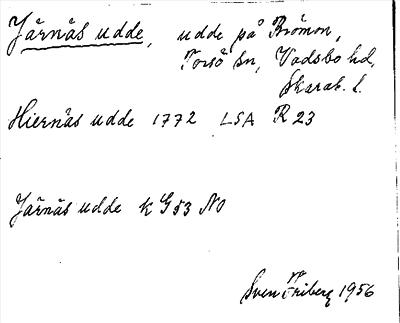 Järnäs udde, udde på Brömon,
Torsö sn, Vadsbo hd,
Skarab. l.
Hiernäs udde 1772 LSA R 23
Järnäs udde k G53 NO
Sven Friberg 1956